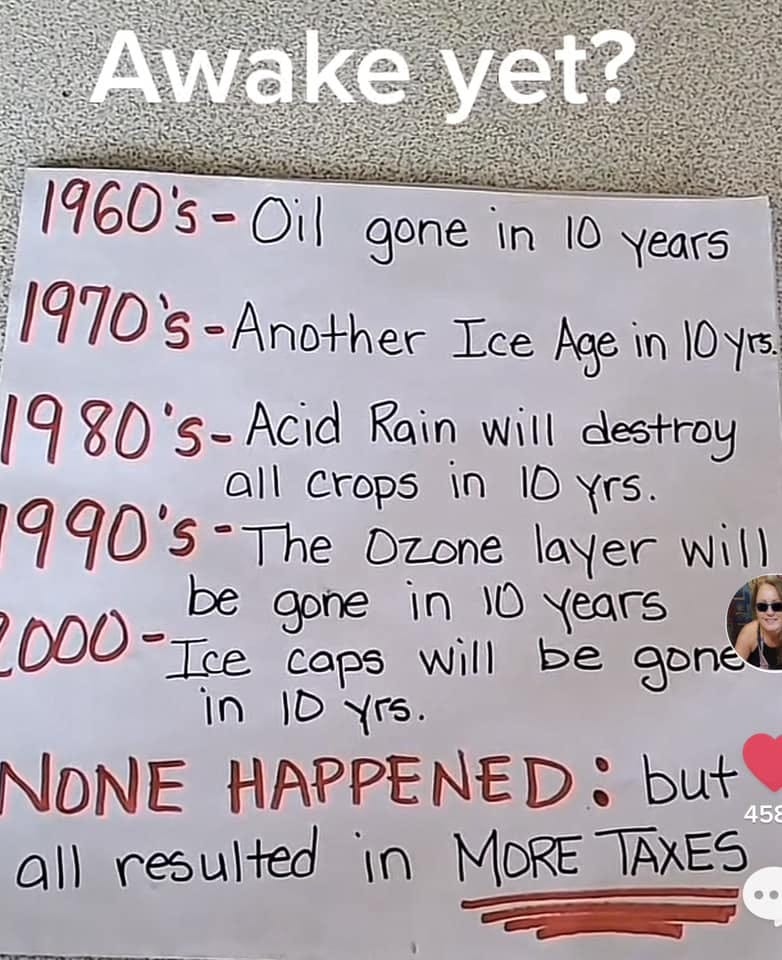 Awake yet?
1960's - Oil gone in 10 years
1970's - Another Ice Age in 10 yrs.
1980's - Acid Rain will destroy
all crops in 10 yrs.
1990's - The Ozone layer will
be gone in 10 years
2000 - Ice caps will be gone
in 10 yrs.
NONE HAPPENED: but
all resulted in MORE TAXES
458